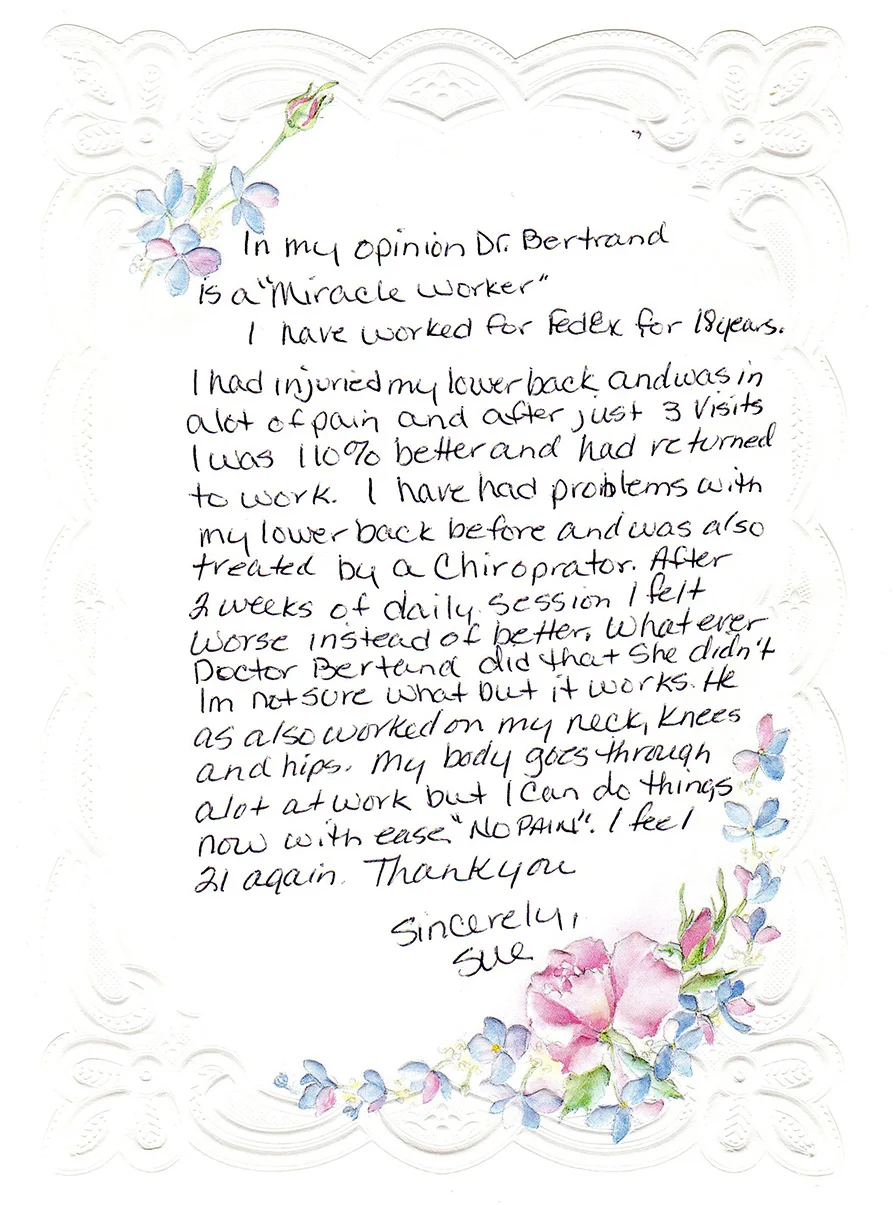 In my opinion Dr. Bertrand
is a "Miracle Worker"
I have worked for FedEx for 18 years.
I had injuried my lower back and was in
alot of pain and after just 3 visits
I was 110% better and had returned
to work. I have had problems with
my lower back before and was also
treated by a Chiroprator. After
2 weeks of daily session I felt
worse instead of better. Whatever
Doctor Bertand did that she didn't
Im not sure what but it works. He
as also worked on my neck, knees
and hips. My body goes through
alot at work but I can do things
now with ease "NO PAIN". I feel
21 again. Thank you
Sincerely,
Sue